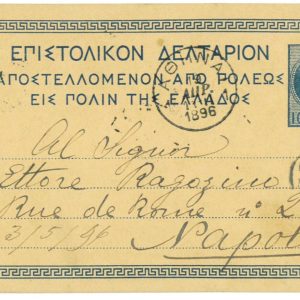 ΕΠΙΣΤΟΛΙΚΟΝ ΔΕΛΤΑΡΙΟΝ
ΑΠΟΣΤΕΛΛΟΜΕΝΟΝ ΑΠΟ ΠΟΛΕΩΣ
ΕΙΣ ΠΟΛΙΝ ΤΗΣ ΕΛΛΑΔΟΣ
ΑΘΗΝΑΙ
ΑΠΡ.
1896
10
Al Signor
Ettore Ragozino
Rue de Rome n 2
3/5/96
Napol